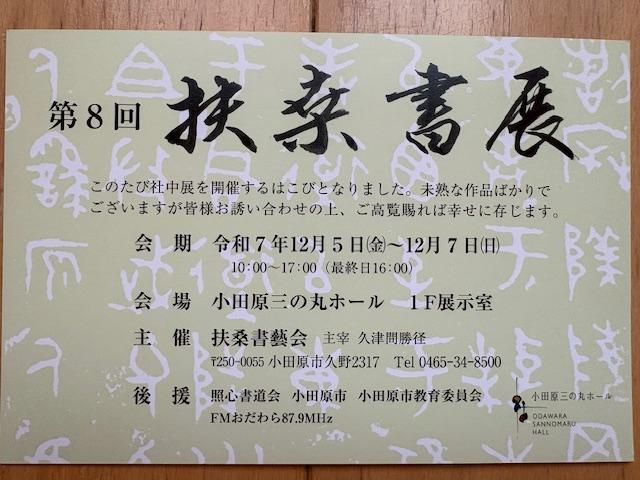 第8回 扶桑書展
このたび社中展を開催するはこびとなりました。未熟な作品ばかりで
ございますが皆様お誘い合わせの上、ご高覧賜れば幸せに存じます。
会 期 令和7年12月5日㈮～12月7日㈰
10:00～17:00（最終日16:00）
会 場 小田原三の丸ホール 1F展示室
主 催 扶桑書藝会 主宰 久津間勝径
〒250-0055 小田原市久野2317 Tel 0465-34-8500
後 援 照心書道会 小田原市 小田原市教育委員会
FMおだわら87.9MHz
小田原三の丸ホール
ODAWARA
SANNOMARU
HALL